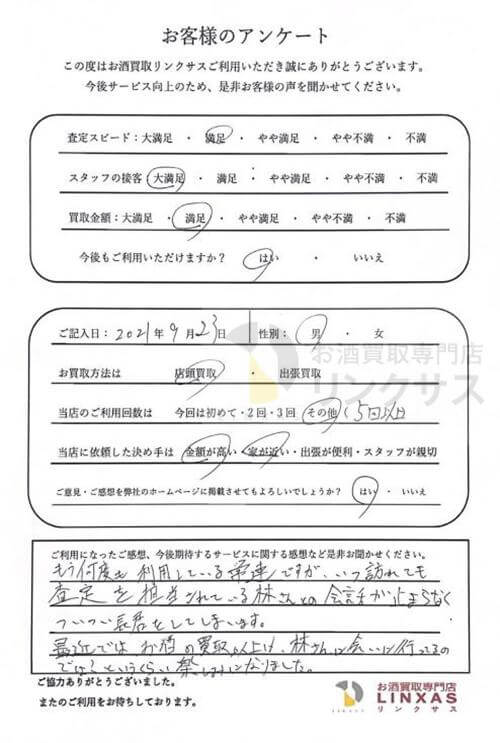 お客様のアンケート
この度はお酒買取リンクサスご利用いただき誠にありがとうございます。
今後サービス向上のため、是非お客様の声を聞かせてください。
査定スピード：大満足 ・ 満足 ・ やや満足 ・ やや不満 ・ 不満
スタッフの接客 大満足 ・ 満足 ・ やや満足 ・ やや不満 ・ 不満
買取金額：大満足 ・ 満足 ・ やや満足 ・ やや不満 ・ 不満
今後もご利用いただけますか？ はい ・ いいえ
ご記入日：2021年 9月 23日 性別： 男 ・ 女
お酒買取専門店
リンクサス
お買取方法は 店頭買取 ・ 出張買取
当店のご利用回数は 今回は初めて・2回・3回 その他（5回以上
当店に依頼した決め手は 金額が高い・家が近い・出張が便利・スタッフが親切
ご意見・ご感想を弊社のホームページに掲載させてもよろしいでしょうか？ はい ・ いいえ
ご利用になったご感想、今後期待するサービスに関する感想など是非お聞かせください。
もう何度も利用している常連ですが、いつ訪れても
査定を担当されている林さんとの会話が止まらなく
ついつい長居をしてしまいます。
最近では、お酒の買取以上に、林さんに会いに行ってるの
ではというくらい楽しみになりました。
ご協力ありがとうございました。
またのご利用をお待ちしております。
お酒買取専門店
LINXAS
リンクサス